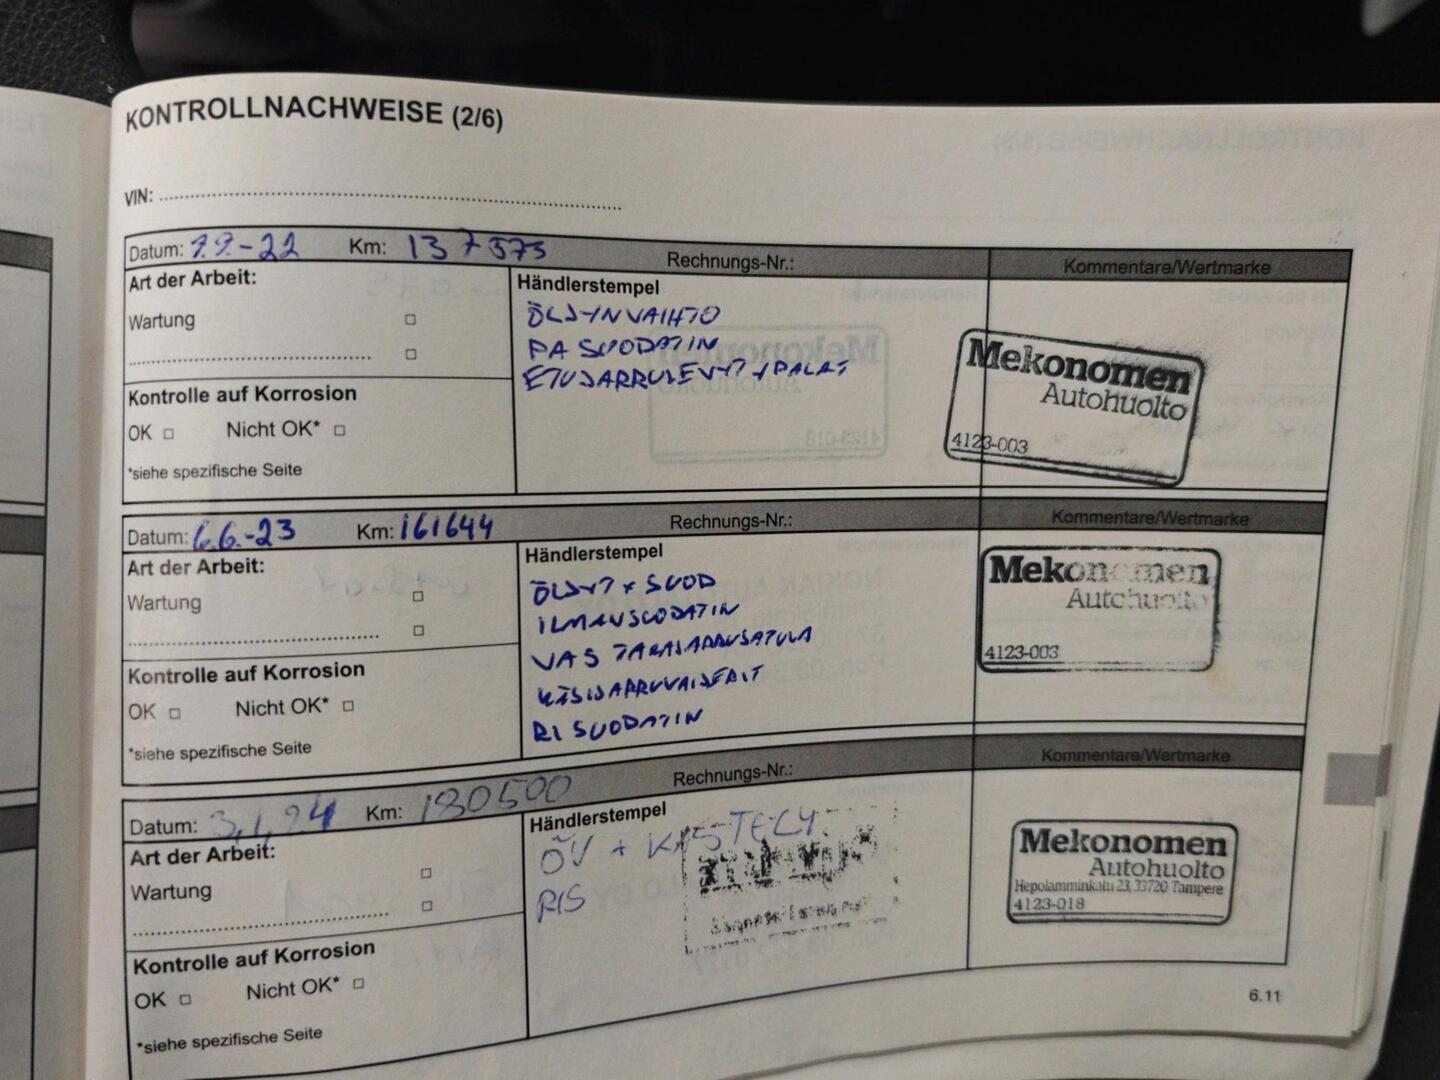 KONTROLLNACHWEISE (2/6)
VIN:
Datum: 9.9.-22 Km: 137373 Rechnungs-Nr.: Kommentare/Wertmarke
Art der Arbeit:
Wartung
Kontrolle auf Korrosion
OK Nicht OK*
*siehe spezifische Seite
Händlerstempel
ÖLJYNVAIHTO
PA SUODATIN
ETUJARRULEVYT + PALAT
Mekonomen
Autohuolto
4123-003
Datum: 6.6.-23 Km: 161644 Rechnungs-Nr.: Kommentare/Wertmarke
Art der Arbeit:
Wartung
Kontrolle auf Korrosion
OK Nicht OK*
*siehe spezifische Seite
Händlerstempel
ÖLJYT + SUOD
ILMANSUODATIN
VAS TAKAJARRUSATULA
KÄSIJARRUVAIJERIT
RI SUODATIN
Mekonomen
Autohuolto
4123-003
Datum: 3.1.24 Km: 180500 Rechnungs-Nr.: Kommentare/Wertmarke
Art der Arbeit:
Wartung
Kontrolle auf Korrosion
OK Nicht OK*
*siehe spezifische Seite
Händlerstempel
ÖV +
RIS
Mekonomen
Autohuolto
Hepolamminkatu 23, 33720 Tampere
4123-018
6.11